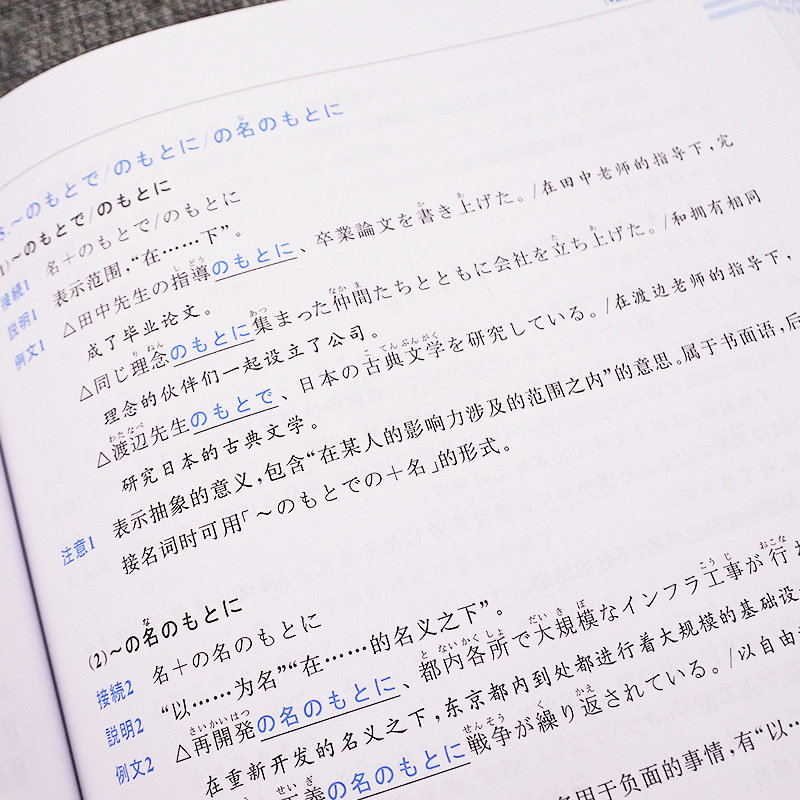 ～のもとで/のもとに/の名のもとに
(1)～のもとで/のもとに
接続1 名＋のもとで/のもとに
説明1 表示范围，“在……下”。
例文1 △田中先生の指導のもとに、卒業論文を書き上げた。/在田中老师的指导下，完
成了毕业论文。
△同じ理念のもとに集まった仲間たちとともに会社を立ち上げた。/和拥有相同
理念的伙伴们一起设立了公司。
△渡辺先生のもとで、日本の古典文学を研究している。/在渡边老师的指导下，
研究日本的古典文学。
注意1 表示抽象的意义，包含“在某人的影响力涉及的范围之内”的意思。属于书面语，后
接名词时可用「～のもとでの＋名」的形式。
(2)～の名のもとに
接続2 名＋の名のもとに
説明2 “以……为名”“在……的名义之下”。
例文2 △再開発の名のもとに、都内各所で大規模なインフラ工事が行
在重新开发的名义之下，东京都内到处都进行着大规模的基础设
正義の名のもとに戦争が繰り返されている。/以自由
用于负面的事情，有“以…